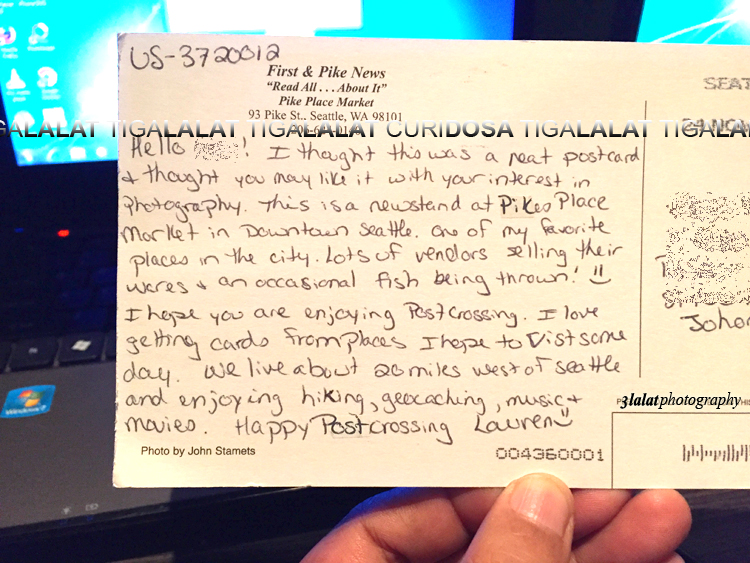 US-3720012
First & Pike News
"Read All . . . About It"
Pike Place Market
93 Pike St.. Seattle, WA 98101
TIGALALAT TIGALALAT CURIDOSA TIGALALAT TIGALALAT
Hello ! I thought this was a neat postcard
& thought you may like it with your interest in
photography. This is a newstand at Pikes Place
Market in Downtown Seattle. One of my favorite
places in the city. Lots of vendors selling their
wares & an occasional fish being thrown!
I hope you are enjoying Postcrossing. I love
getting cards from places I hope to vist some
day. We live about 20 miles west of seattle
and enjoying hiking, geocaching, music &
movies. Happy Postcrossing Lauren
Photo by John Stamets
004360001
SEAT
24 NOV
Johor
3lalatphotography
Windows 7